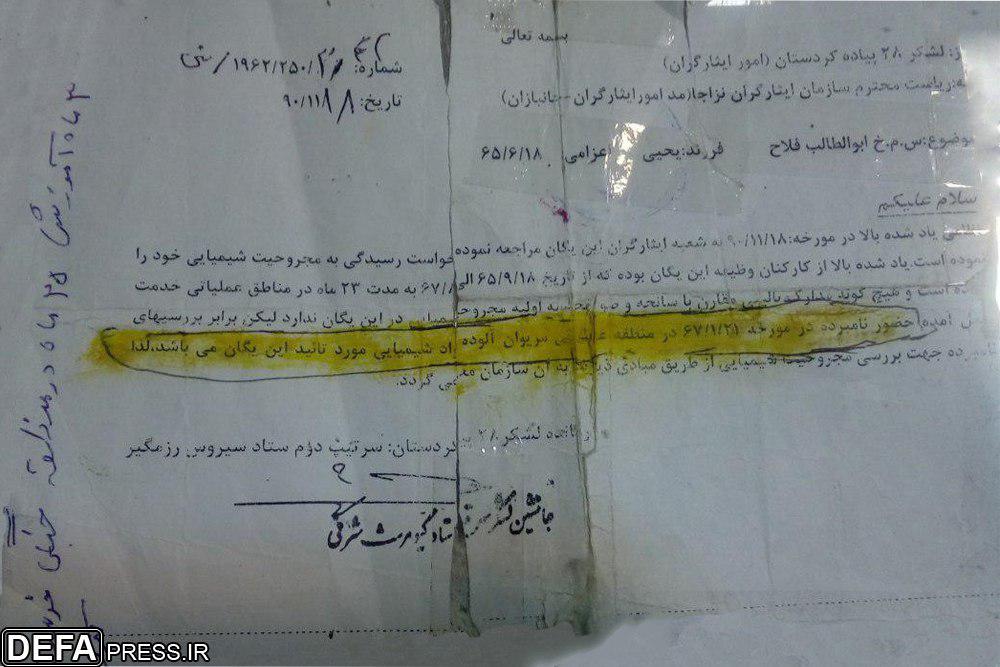 بسمه تعالی
از: لشکر ۲۸ پیاده کردستان (امور ایثارگران)
به:ریاست محترم سازمان ایثارگران نزاجا(مد امورایثارگران -جانبازان)
شماره: ۱۹۶۲/۲۵۰/
تاریخ: ۹۰/۱۱/۱۸
موضوع:س.م.خ ابوالطالب فلاح فرزند:یحیی اعزامی ۶۵/۶/۱۸
سلام علیکم
یاد شده بالا در مورخه:۹۰/۱۱/۱۸ به شعبه ایثارگران این یگان مراجعه نموده خواست رسیدگی به مجروحیت شیمیایی خود را
نموده است.یاد شده بالا از کارکنان وظیفه این یگان بوده که از تاریخ ۶۵/۹/۱۸ الی ۶۷/۸ به مدت ۲۳ ماه در مناطق عملیاتی خدمت
است و هیچ گونه مدارک بالینی مقارن با سانحه و اولیه در این یگان ندارد لیکن برابر بررسیهای
آمده حضور نامبرده در مورخه ۶۷/۱/۲۱ در منطقه مریوان آلوده شیمیایی مورد تائید این یگان می باشد.لذا
جهت بررسی مجروحیت شیمیایی از طریق مبادی به آن سازمان می گردد.
فرمانده لشکر ۲۸ پ کردستان: سرتیپ دوم ستاد سیروس رزمگیر
جانشین لشکر ستاد کیومرث شرفی
۳ ماه آموزش ۲۵ ماه در منطقه جنگی
DEFAPRESS.IR